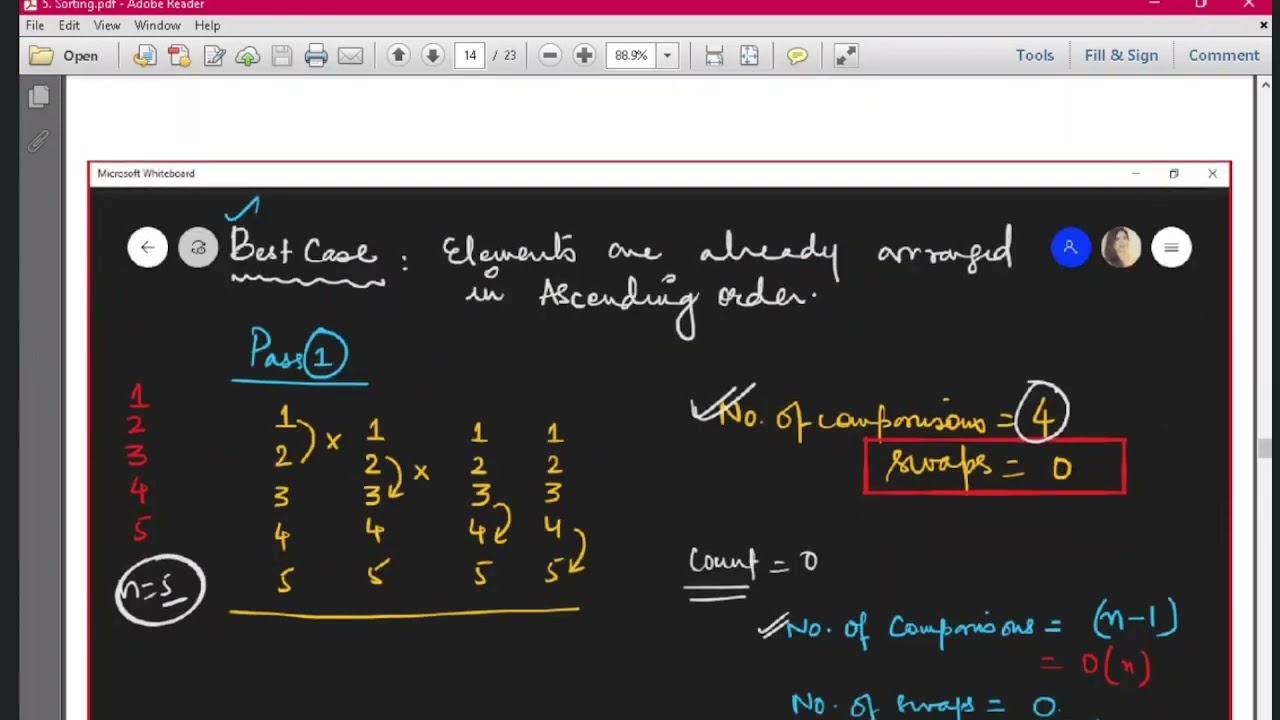 5. Sorting.pdf - Adobe Reader
File Edit View Window Help
Open 14 / 23 88.9% Tools Fill & Sign Comment
Microsoft Whiteboard
Best Case : Elements are already arranged
in Ascending order.
Pass 1
1
2
3
4
5
n=5
1 1 1 1
2 x 2 2 2
3 3 x 3 3
4 4 4 4
5 5 5 5
No. of comparisions = 4
swaps = 0
Count = 0
No. of Comparisions = (n-1)
= O(n)
No. of swaps = 0.